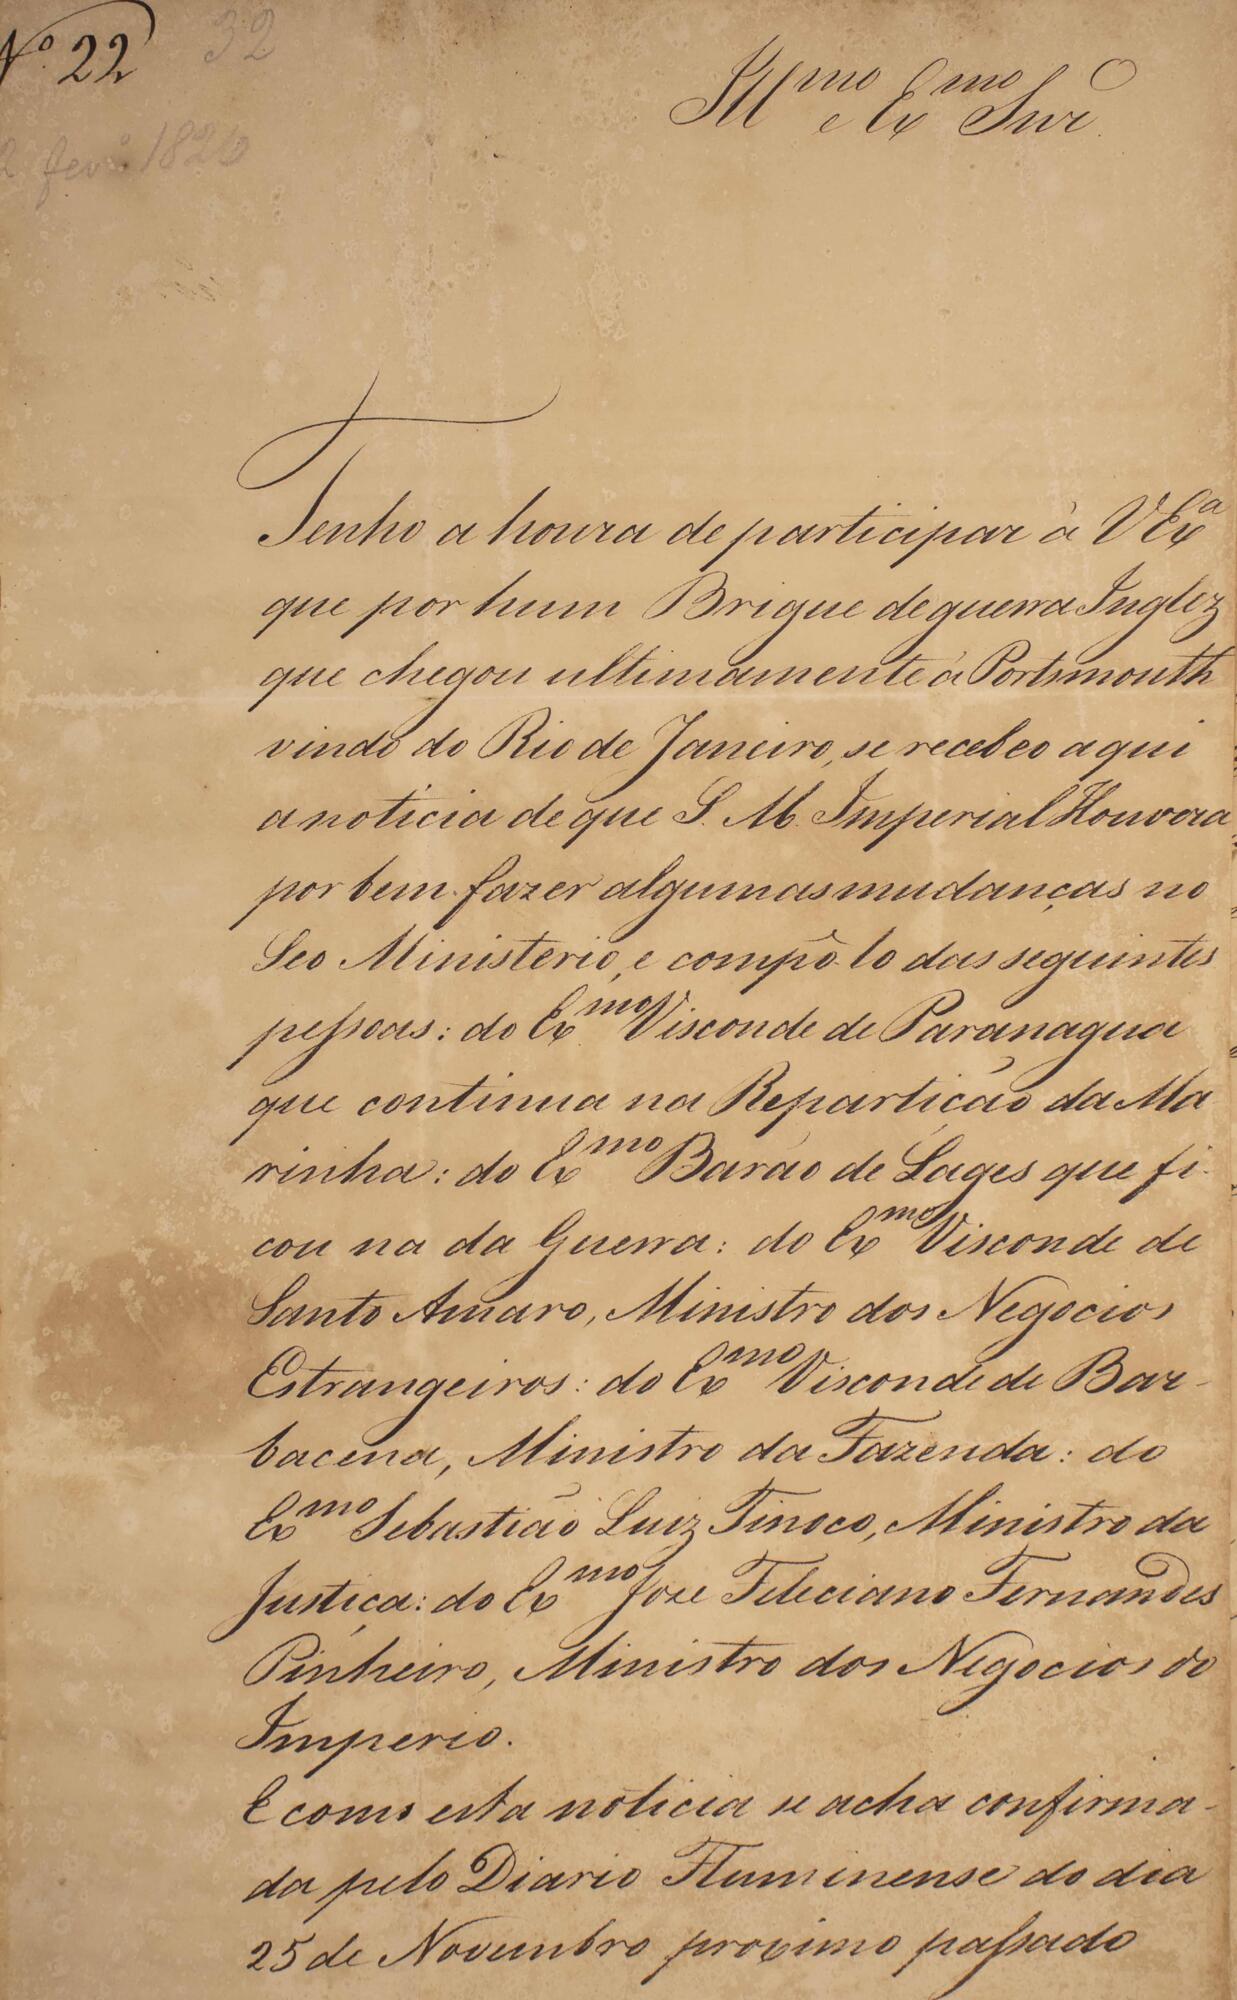 Nº 22 32
Illmo e Exmo Snr.
2 fevº 1826
Tenho a honra de participar à VExª
que por hum Brigue de guerra Inglez
que chegou ultimamente à Portsmouth
vindo do Rio de Janeiro, se recebeo aqui
a noticia de que S. M. Imperial Houvera
por bem fazer algumas mudanças no
Seo Ministerio, e compô-lo das seguintes
pessoas: do Exmo Visconde de Paranagua
que continua na Repartição da Ma
rinha: do Exmo Barão de Lages que fi-
cou na da Guerra: do Exmo Visconde de
Santo Amaro, Ministro dos Negocios
Estrangeiros: do Exmo Visconde de Bar-
bacena, Ministro da Fazenda: do
Exmo Sebastião Luiz Tinoco, Ministro da
Justiça: do Exmo Joze Feleciano Fernandes
Pinheiro, Ministro dos Negocios do
Imperio.
E como esta noticia se acha confirma-
da pelo Diario Fluminense do dia
25 de Novembro proximo passado